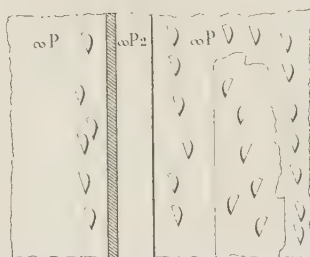 ∞P ∞P2 ∞P